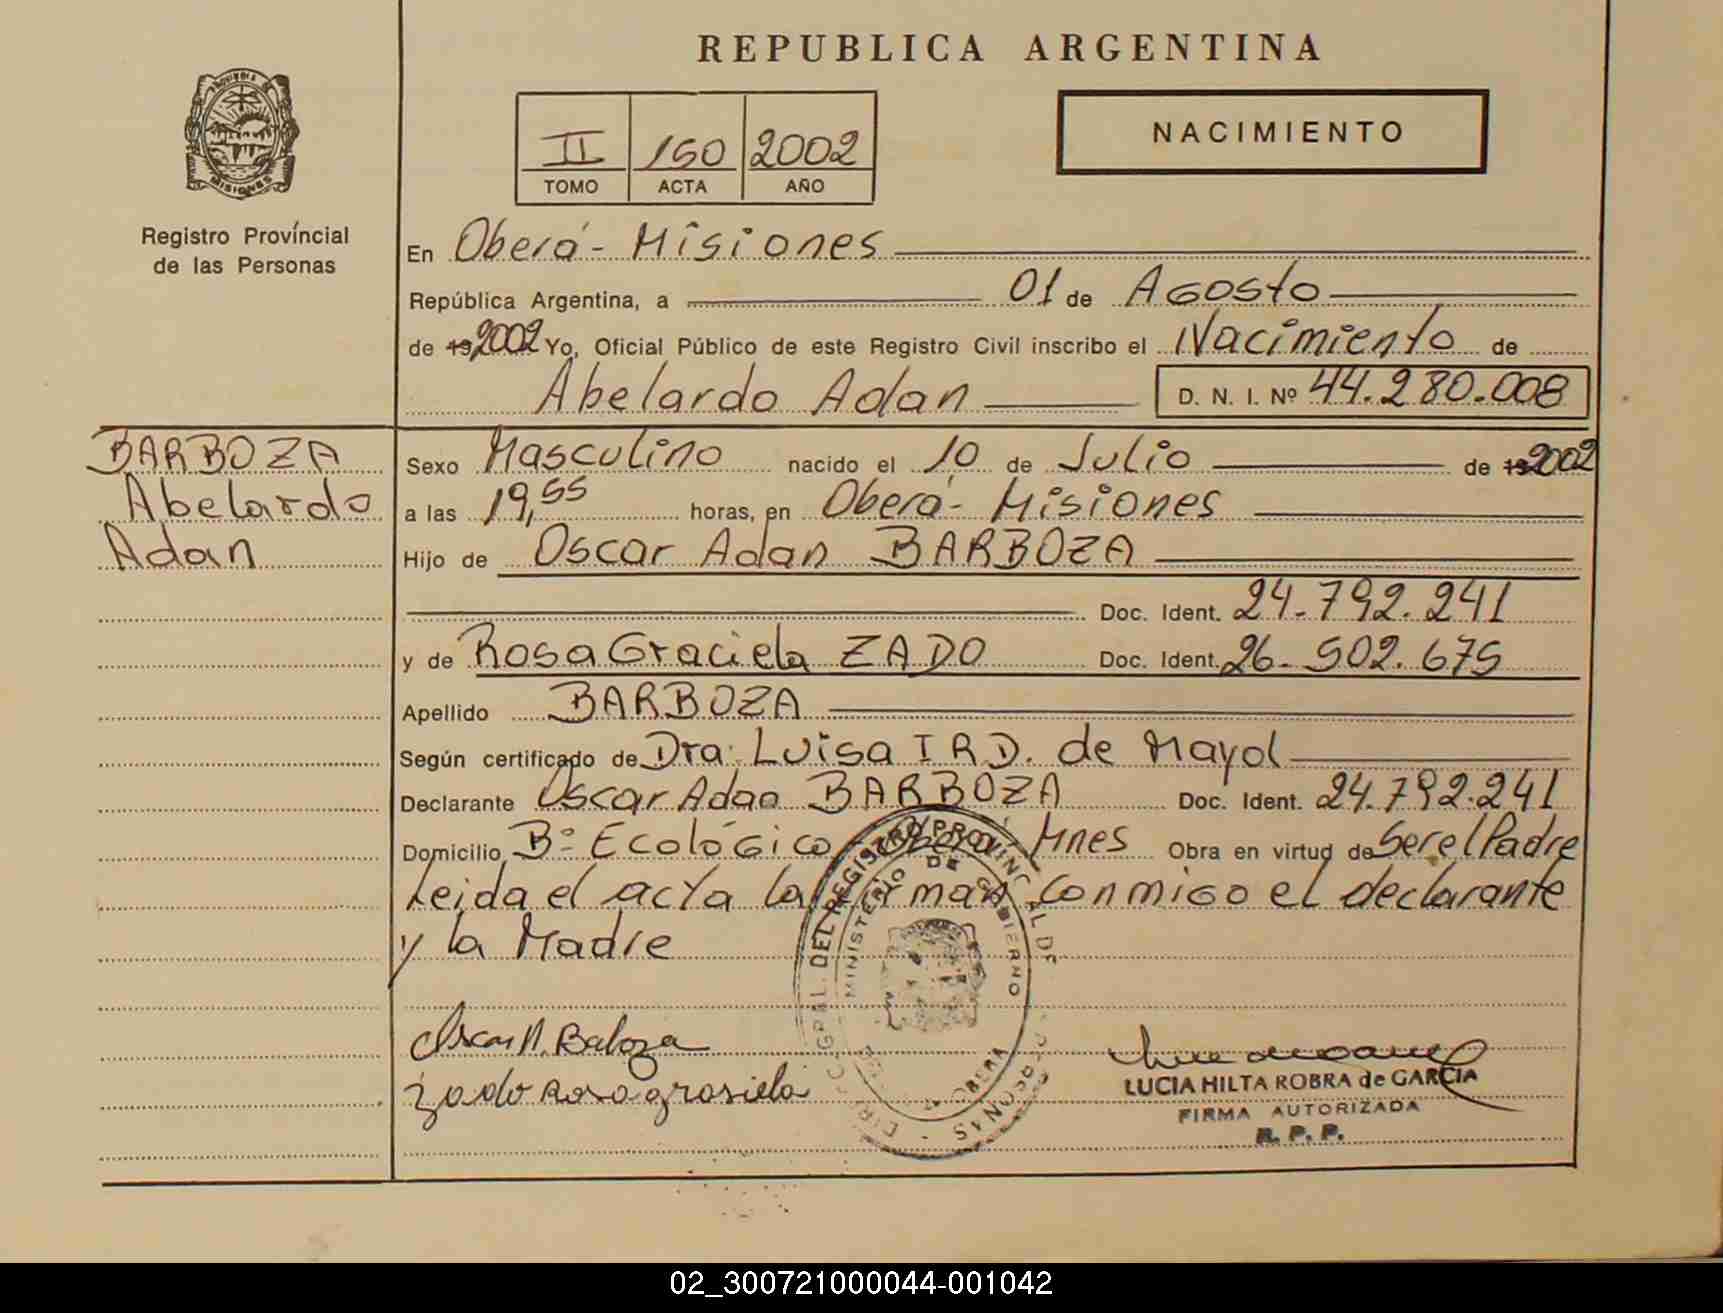 REPUBLICA ARGENTINA
PROVINCIA DE
MISIONES
Registro Províncial
de las Personas
II 150 2002
TOMO ACTA AÑO
NACIMIENTO
En Oberá - Misiones
República Argentina, a 01 de Agosto
de 19 2002 Yo, Oficial Público de este Registro Civil inscribo el Nacimiento de
Abelardo Adan D. N. I. Nº 44.280.008
BARBOZA
Abelardo
Adan
Sexo Masculino nacido el 10 de Julio de 19 2002
a las 19,55 horas, en Oberá - Misiones
Hijo de Oscar Adan BARBOZA
Doc. Ident. 24.792.241
y de Rosa Graciela ZADO Doc. Ident. 26.502.675
Apellido BARBOZA
Según certificado de Dra. Luisa I R D. de Mayol
Declarante Oscar Adan BARBOZA Doc. Ident. 24.792.241
Domicilio Bº Ecológico Oberá Mnes Obra en virtud de Ser el Padre
Leida el acta la firman conmigo el declarante
y la Madre
Oscar A. Baboza
Zado Rosa grasiela
DIRECC. GRAL. DEL REGISTRO PROVINCIAL DE LAS PERSONAS -
MINISTERIO DE GOBIERNO
OBERA
LUCIA HILTA ROBRA de GARCIA
FIRMA AUTORIZADA
R. P. P.
02_300721000044-001042